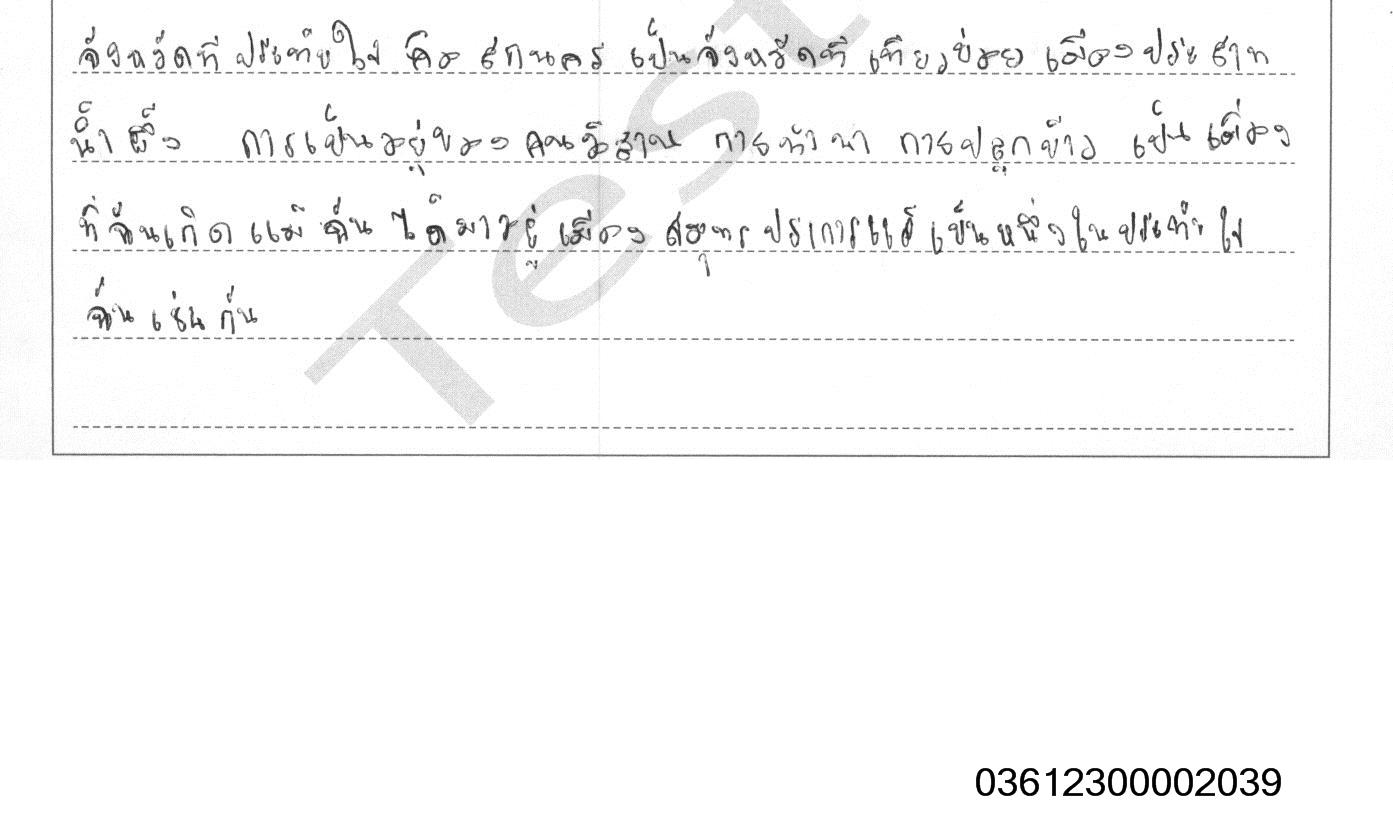 จังหวัดที่ประทับใจ คือ สกนคร เป็นจังหวัดที่ เที่ยวบ่อย เมืองประสาท
น้ำผึ้ง การเป็นอยู่ของ คนอีสาน การทำนา การปลูกข้าว เป็นเมือง
ที่ฉันเกิด แม้ ฉัน ได้มาอยู่ เมือง สมุทรประการแล้ว เป็นหนึ่งในประทับใจ
ฉัน เช่น กัน
Test
03612300002039